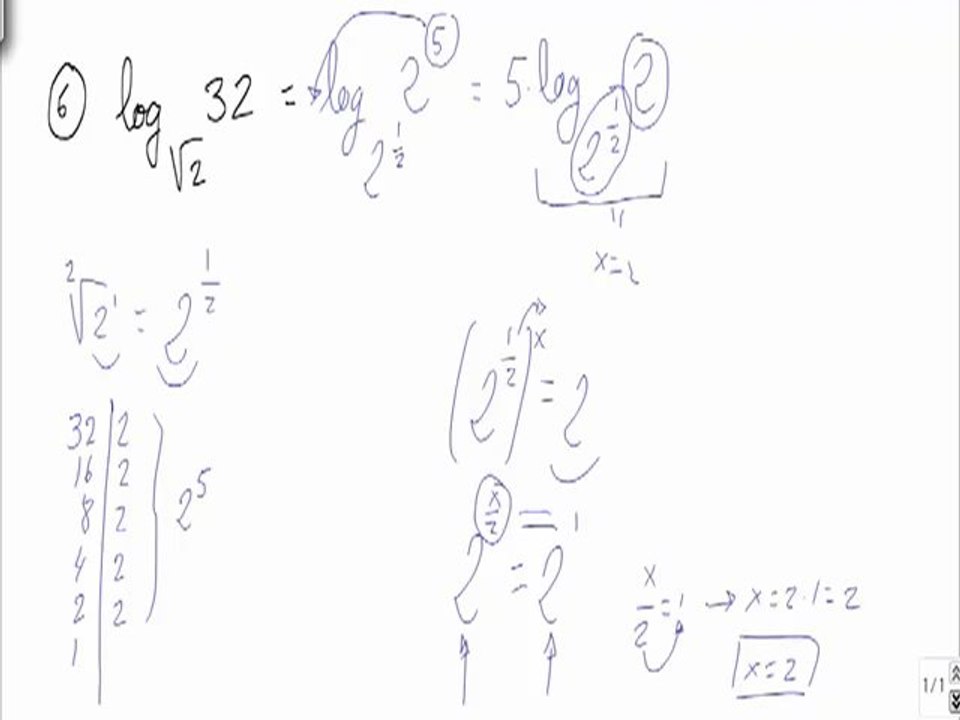 ⑥ log_{√2} 32 = log_{2^{1/2}} 2^5 = 5·log_{2^{1/2}} 2
x=2
²√2¹ = 2^{1/2}
(2^{1/2})^x = 2
32 | 2
16 | 2
8 | 2
4 | 2
2 | 2
1 |
2^5
2^{x/2} = 2^1
x/2 = 1 → x=2·1=2
x=2
1/1